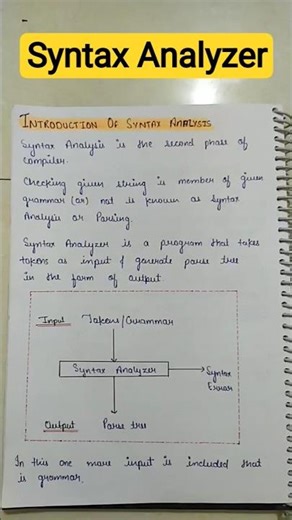 Syntax Analyzer
INTRODUCTION OF SYNTAX ANALYSIS
Syntax Analysis is the second phase of
compiler.
Checking given string is member of given
grammar (or) not is known as Syntax
Analysis or Parsing.
Syntax Analyzer is a program that takes
tokens as input & generate parse tree
in the form of output.
Input Tokens/Grammar
Syntax Analyzer
Syntax
Error
Output Parse tree
In this one more input is included that
is grammar.